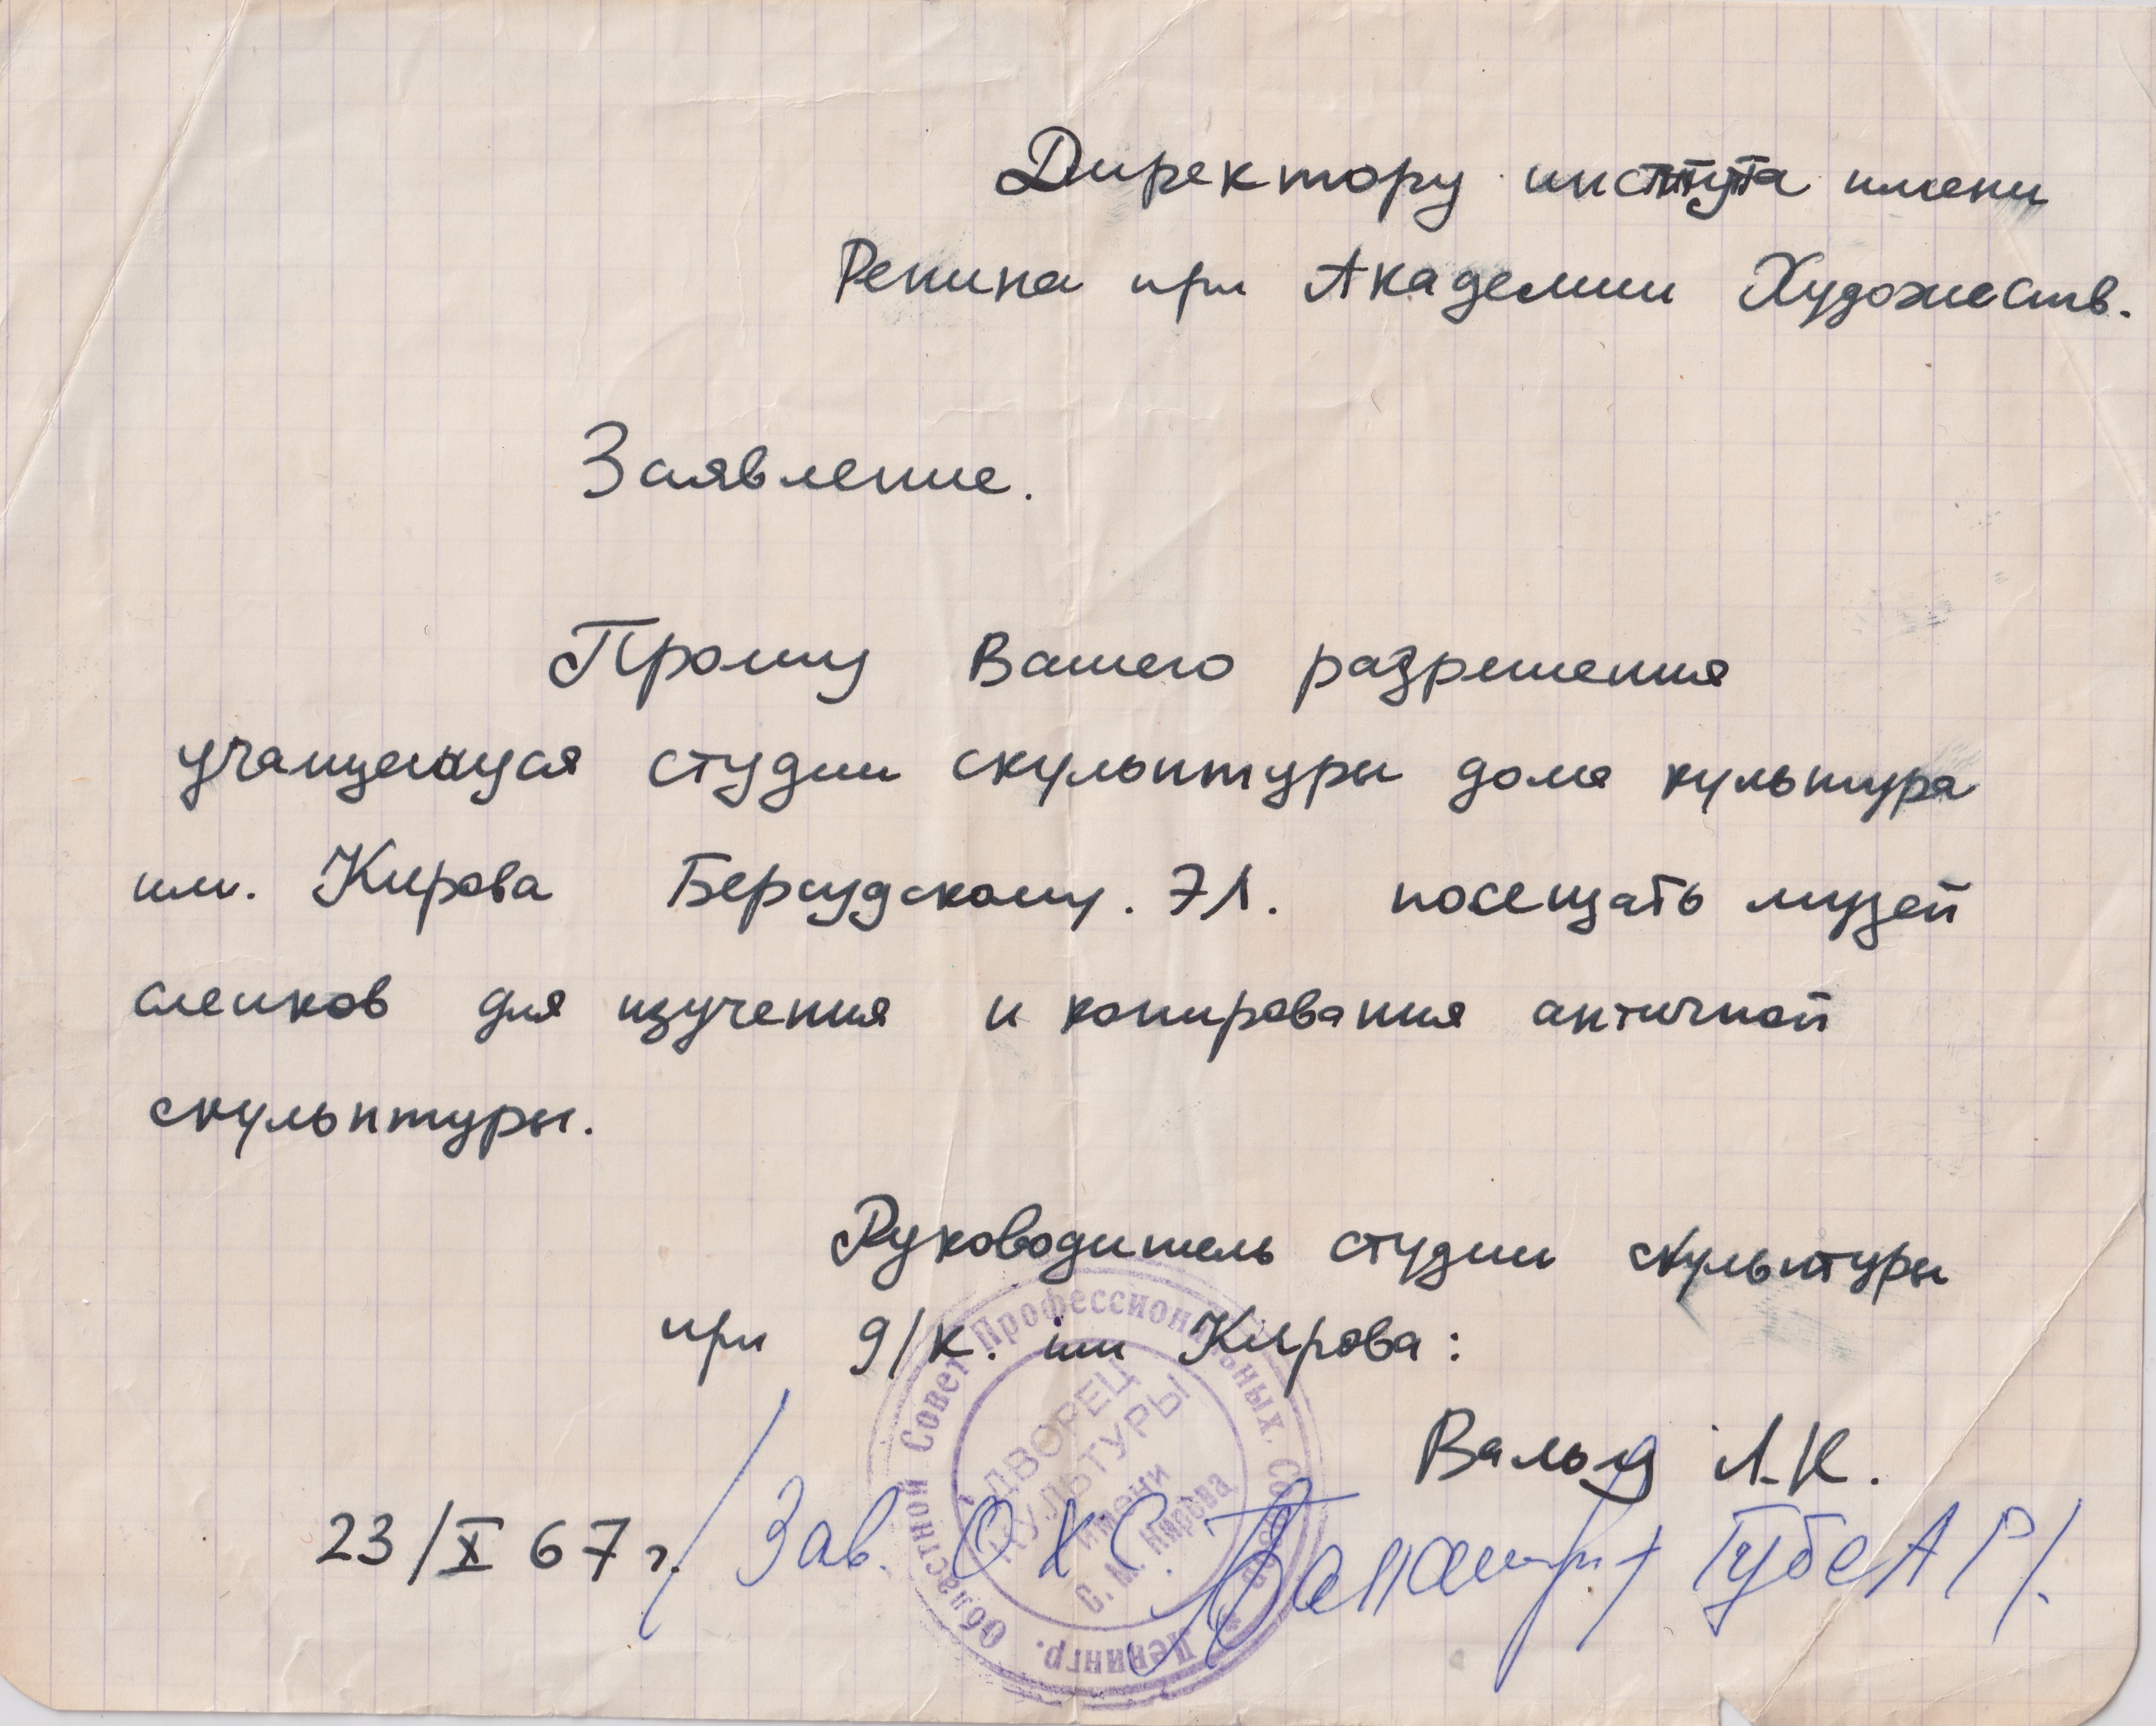 Директору института имени
Репина при Академии Художеств.
Заявление.
Прошу Вашего разрешения
учащемуся студии скульптуры дома культура
им. Кирова Берсудскому. Э Л. посещать музей
слепков для изучения и копирования античной
скульптуры.
Руководитель студии скульптуры
при д/к. им Кирова:
Вальц Л.К.
23/X 67 г. / Зав. ОХС
Ленингр. Областной Совет Профессиональных Союзов
ДВОРЕЦ
КУЛЬТУРЫ
имени
С. М. Кирова